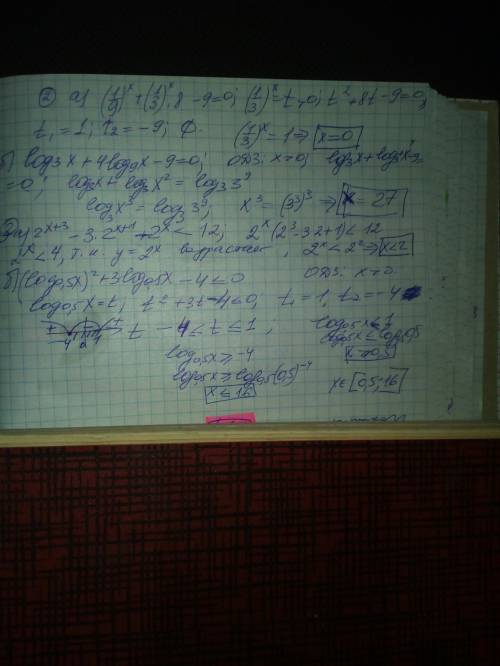 ② а) (1/9)^x + (1/3)^x · 8 - 9 = 0; (1/3)^x = t > 0; t² + 8t - 9 = 0;
t₁ = 1; t₂ = -9; ∅. (1/3)^x = 1 ⇒ x = 0
б) log₃x + 4log₉x - 9 = 0; ОДЗ: x > 0; log₃x +
= 0; log₃x + log₃x² = log₃3⁹
log₃x³ = log₃3⁹; x³ = (3³)³ ⇒ x = 27
а) 2^(x+3) - 3·2^(x+1) + 2^x < 12; 2^x(2³ - 3·2 + 1) < 12
2^x < 4, т.к. y = 2^x возрастает, 2^x < 2² ⇒ x < 2
б) (log₀,₅x)² + 3log₀,₅x - 4 ≤ 0 ОДЗ: x > 0.
log₀,₅x = t; t² + 3t - 4 ≤ 0; t₁ = 1, t₂ = -4
t -4 ≤ t ≤ 1; log₀,₅x ≤ 1
log₀,₅x ≥ -4 log₀,₅x ≤ log₀,₅0,5
log₀,₅x ≥ log₀,₅(0,5)⁻⁴ x ≥ 0,5
x ≤ 16 x∈[0,5; 16]